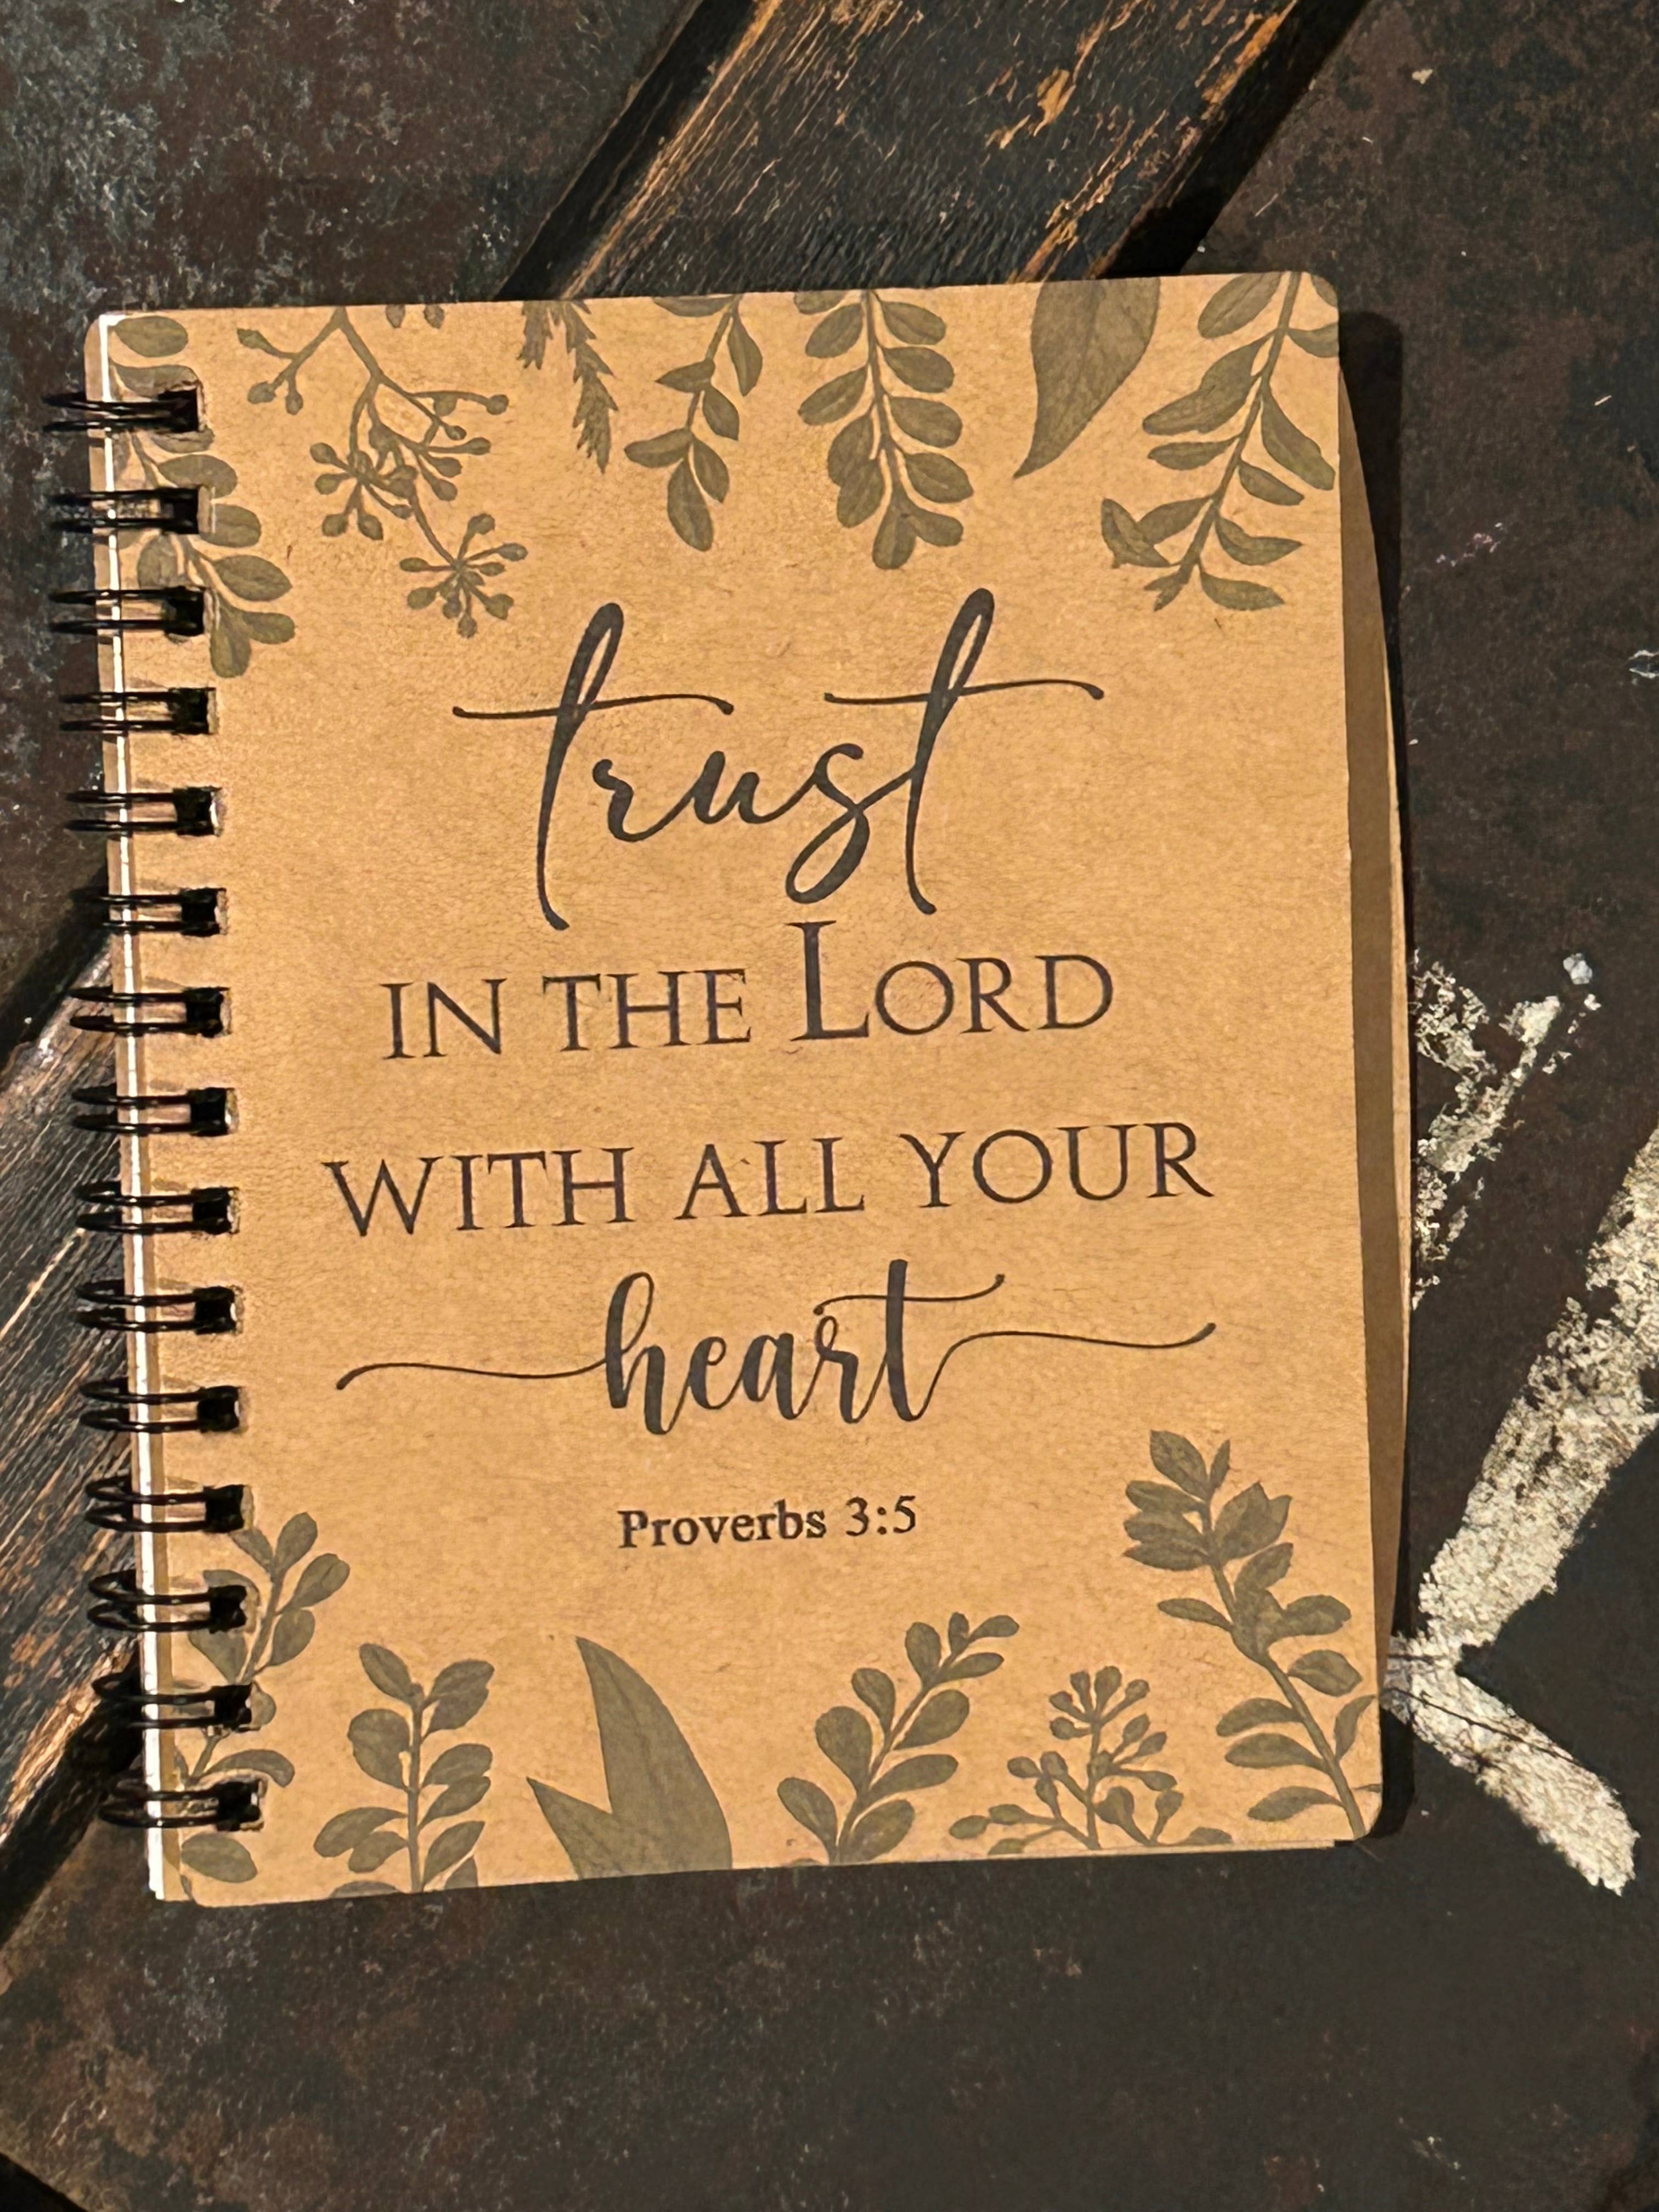 trust
IN THE LORD
WITH ALL YOUR
heart
Proverbs 3:5